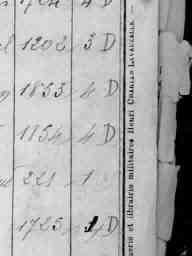 1202 3 D
1853 4 D
1854 4 D
221 1
1725 1 D
et librairie militaires Henri CHARLES-LAVAUZELLE. —